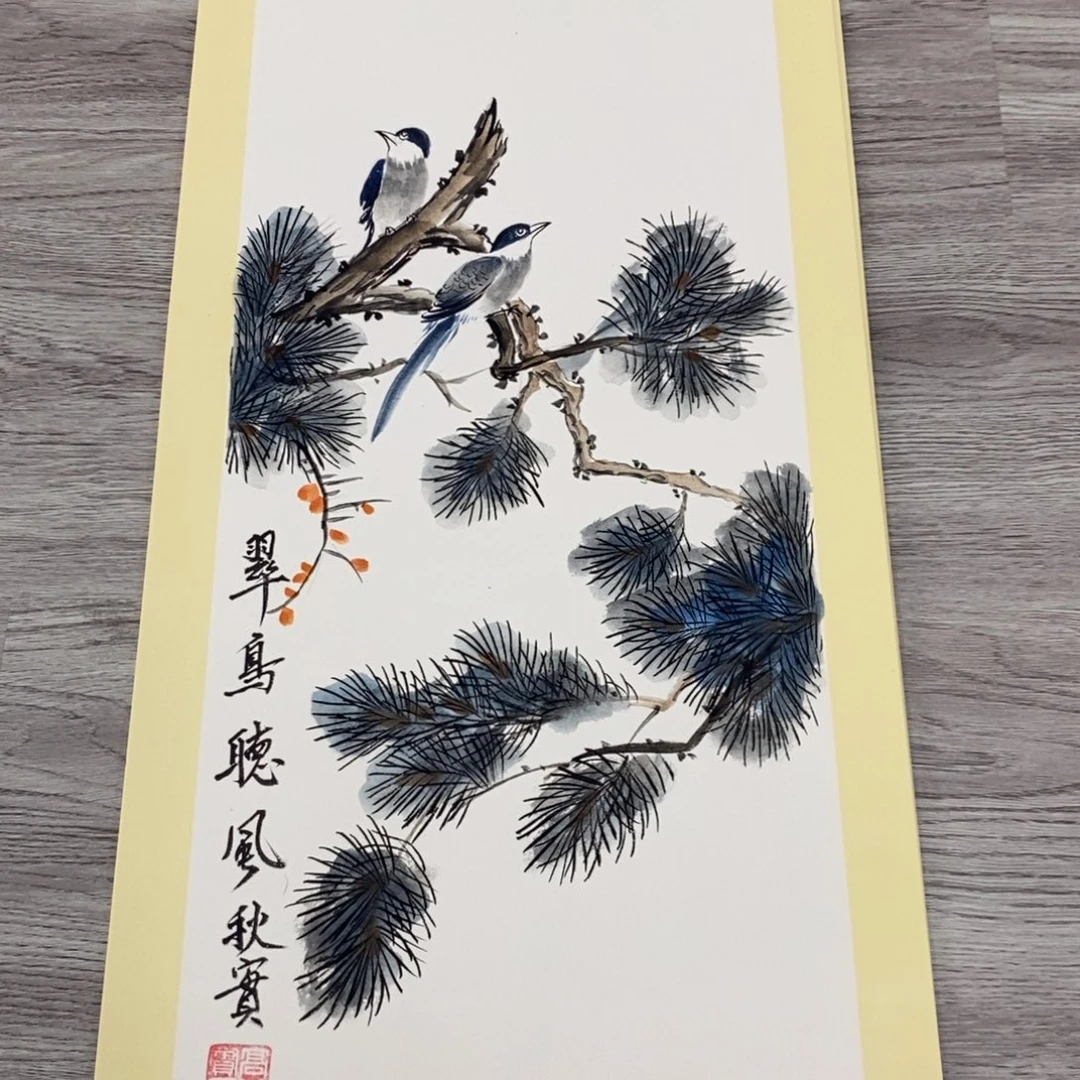 翠鳥聽風秋實